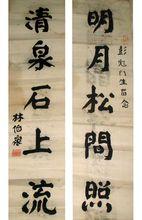 明月松間照
清泉石上流
林伯渠